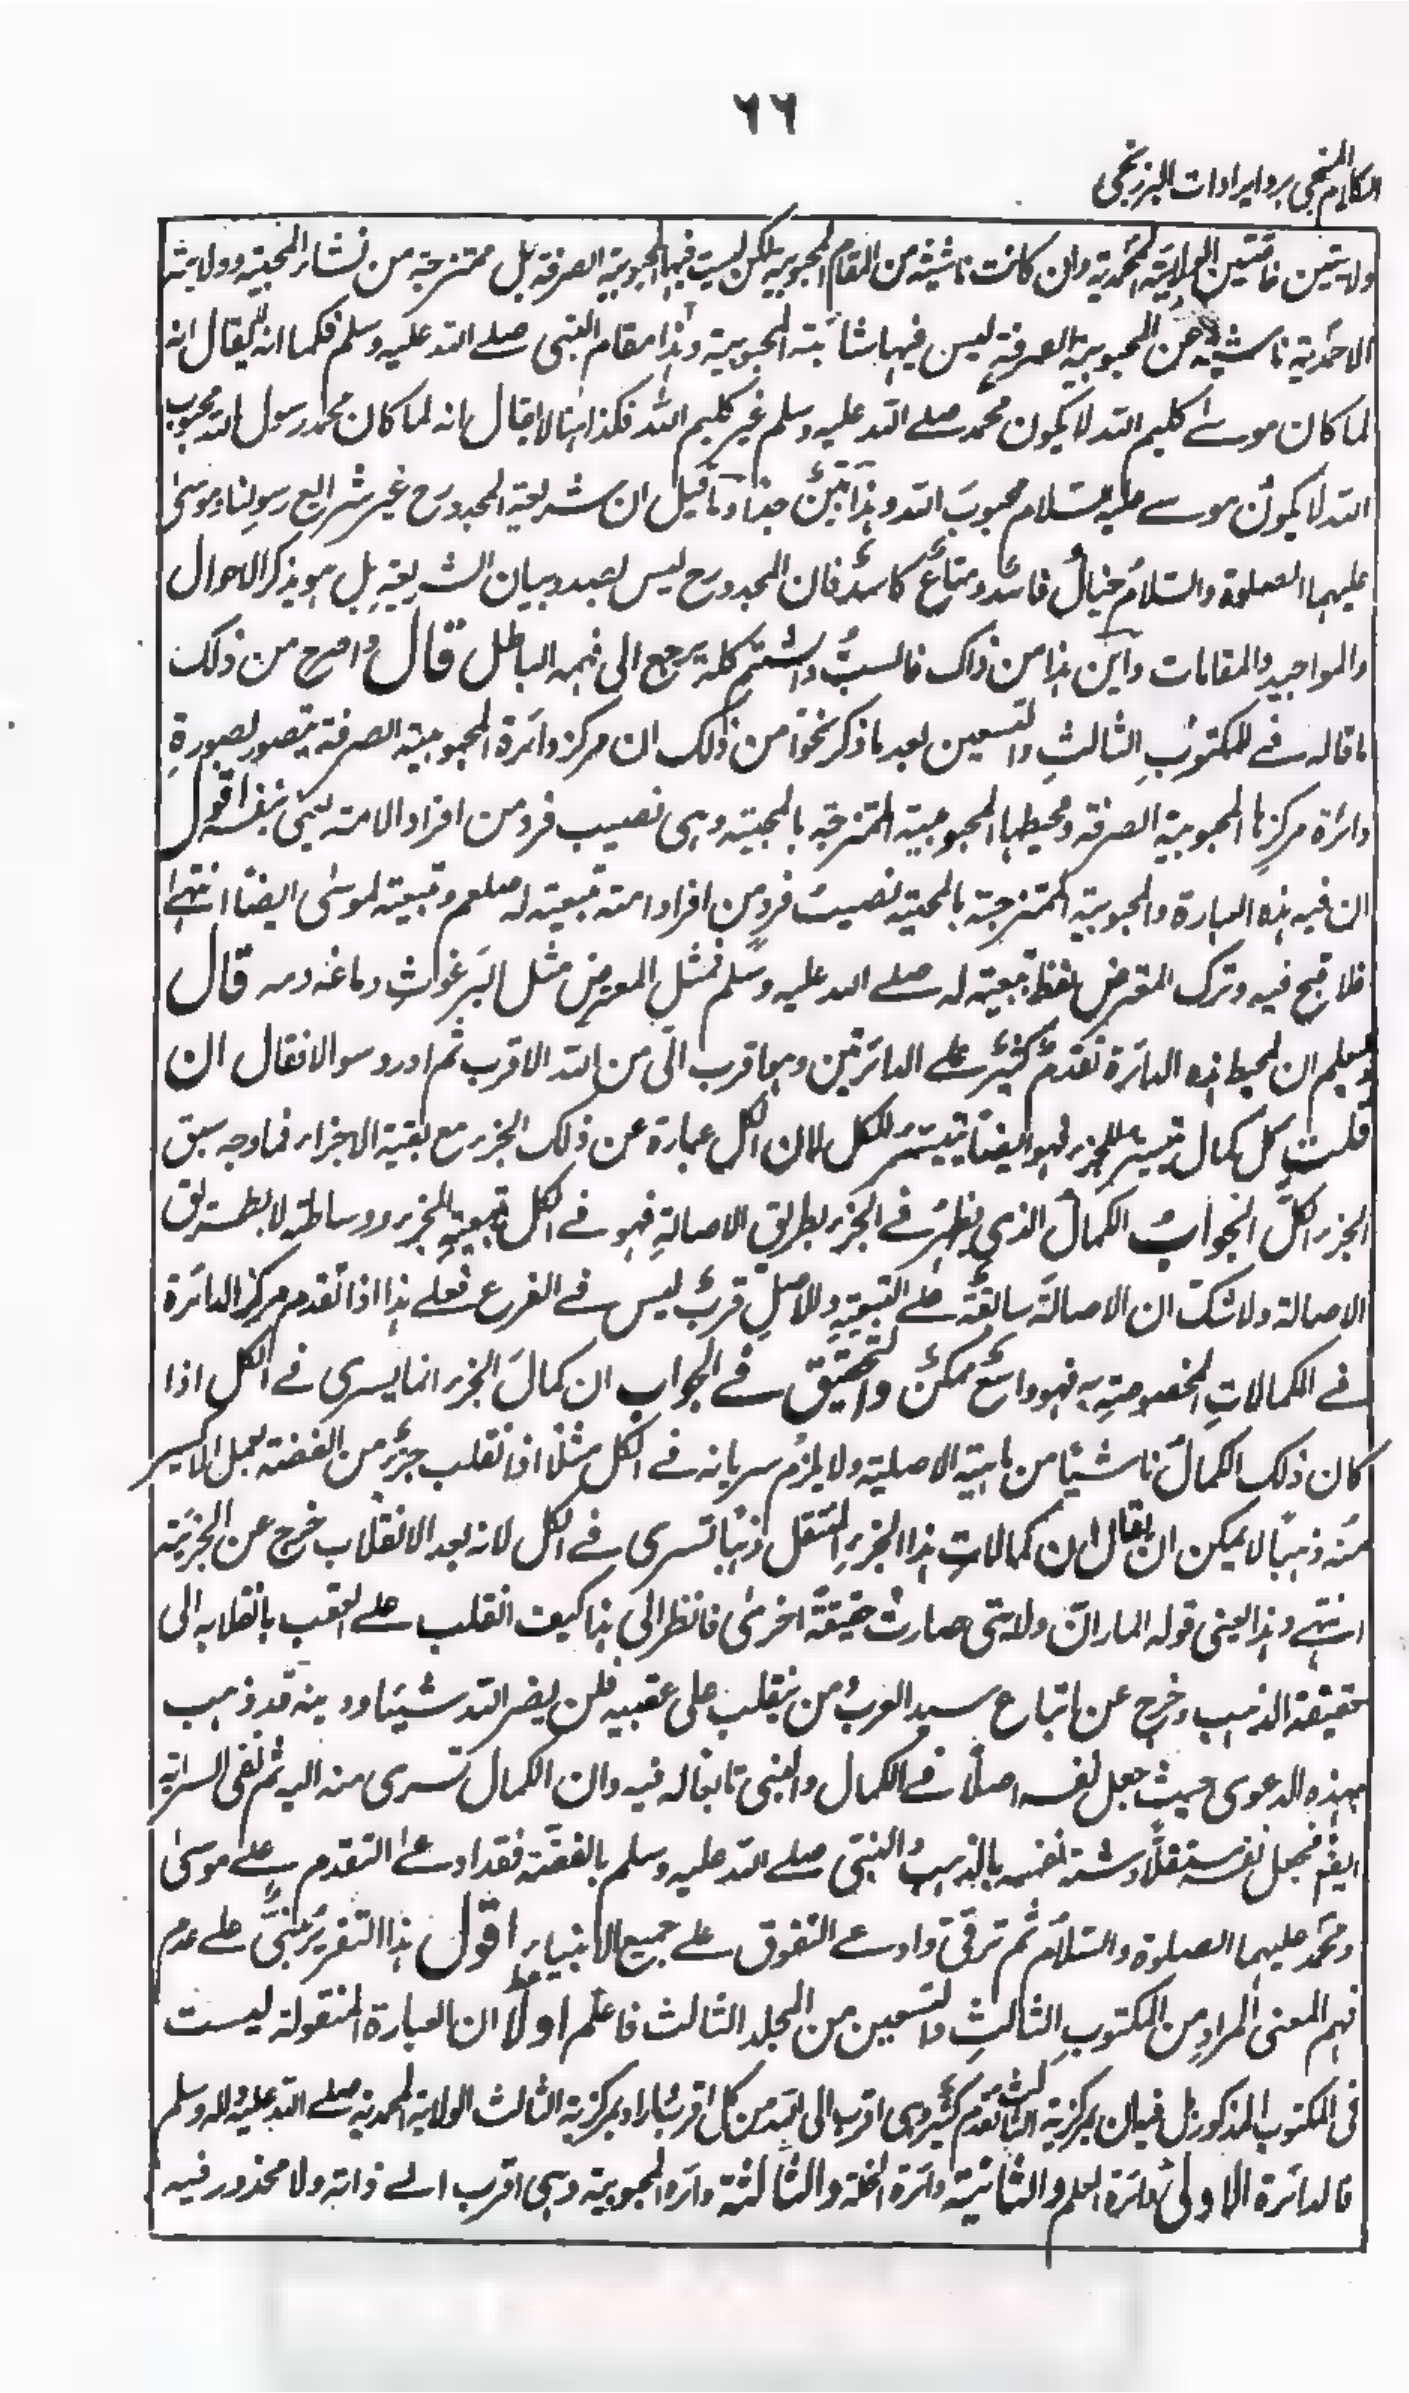 ٦٦
الكلام المنجي برد ايرادات البرزنجي
ولايتين خاصتين الولاية المحمدية وان كانت ناشئة من المقام المحبوبية لكن ليست فيها المحبوبية الصرفة بل ممتزجة من نشاء المحبية وولايته
الاحمدية ناشئة عن المحبوبية الصرفة ليس فيها شائبة المحبوبية وهذا مقام النبي صلى الله عليه وسلم فكما انه لا يقال انه
لما كان موسى كليم الله لا يكون محمد صلى الله عليه وسلم غير كليم الله فكذا هنا لا يقال انه لما كان محمد رسول الله محبوب
الله لا يكون موسى عليه السلام محبوب الله وهذا بين جدا وما قيل ان شريعة المجدد رح غير شرايع رسولنا وموسى
عليهما الصلوة والسلام خيال فاسد ومتاع كاسد فان المجدد رح ليس بصدد بيان الشريعة بل هو يذكر الاحوال
والمواجيد والمقامات واين هذا من ذاك فالسب والشتم كله يرجع الى فهمه الباطل قال واصرح من ذلك
ما قاله في المكتوب الثالث والتسعين بعد ما ذكر نحوا من ذلك ان مركز دائرة المحبوبية الصرفة يتصور بصورة
دائرة مركزها المحبوبية الصرفة ومحيطها المحبوبية الممتزجة بالمحبية وهي نصيب فرد من افراد الامة يعني نفسه اقول
ان فيه هذه العبارة والمحبوبية الممتزجة بالمحبية نصيب فرد من افراد امته تبعيته له صلعم وتبعيته لموسى ايضا انتهى
فلا قبح فيه وترك المعترض لفظ تبعيته له صلى الله عليه وسلم فمثل المعترض مثل البرغوث دماغه دمه قال
وليعلم ان لمحيط هذه الدائرة تقدم كثير على الدائرتين وهما اقرب الى من الله الاقرب ثم اورد سوالا فقال ان
قلت كل كمال يتيسر للجزء فهو ايضا يتيسر للكل لان الكل عبارة عن ذلك الجزء مع بقية الاجزاء فما وجه سبق
الجزء الكل الجواب الكمال الذي يظهر في الجزء بطريق الاصالة فهو في الكل بتبعية الجزء ووساطته لا بطريق
الاصالة ولا شك ان الاصالة سابقة على التبعية وللاصل قرب ليس في الفرع فعلى هذا اذا تقدم مركز الدائرة
في الكمالات المخصوصة به فهو واسع ممكن والتحقيق في الجواب ان كمال الجزء انما يسري في الكل اذا
كان ذلك الكمال ناشيا من ماهيته الاصلية ولا يلزم سريانه في الكل مثلا اذا نقلب جزء من الفضة بعمل الاكسير
منه ذهبا لا يمكن ان يقال ان كمالات هذا الجزء المنتقل ذهبا تسري في الكل لانه بعد الانقلاب خرج عن الجزئية
انتهى وهذا يعني قوله المار ان ولايتي صارت حقيقة اخرى فانظر الى هذا كيف انقلب على العقب بانقلابه الى
حقيقة الذهب وخرج عن اتباع سيد العرب من ينقلب على عقبيه فلن يضر الله شيئا ودينه قد ذهب
بهذه الدعوى حيث جعل نفسه اصلا في الكمال والنبي تابعا له فيه وان الكمال تسري منه اليه ثم نفى السراية
ايضا فجعل نفسه مستقلا وشبه نفسه بالذهب والنبي صلى الله عليه وسلم بالفضة فقد ادعى التقدم على موسى
ومحمد عليهما الصلوة والسلام ثم ترقى وادعى التفوق على جميع الانبياء اقول هذا التقرير مبني على عدم
فهم المعنى المراد من المكتوب الثالث والتسعين من المجلد الثالث فاعلم اولا ان العبارة المنقولة ليست
في المكتوب المذكور بل فيه ان بمركزية الثالث تقدم كثير وهي اقرب الى الله من كل اقرب اراد بمركزية الثالث الولاية المحمدية صلى الله عليه وآله وسلم
فالدائرة الاولى دائرة العلم والثانية دائرة الخلة والثالثة دائرة المحبوبية وهي اقرب الى ذاته ولا محذور فيه